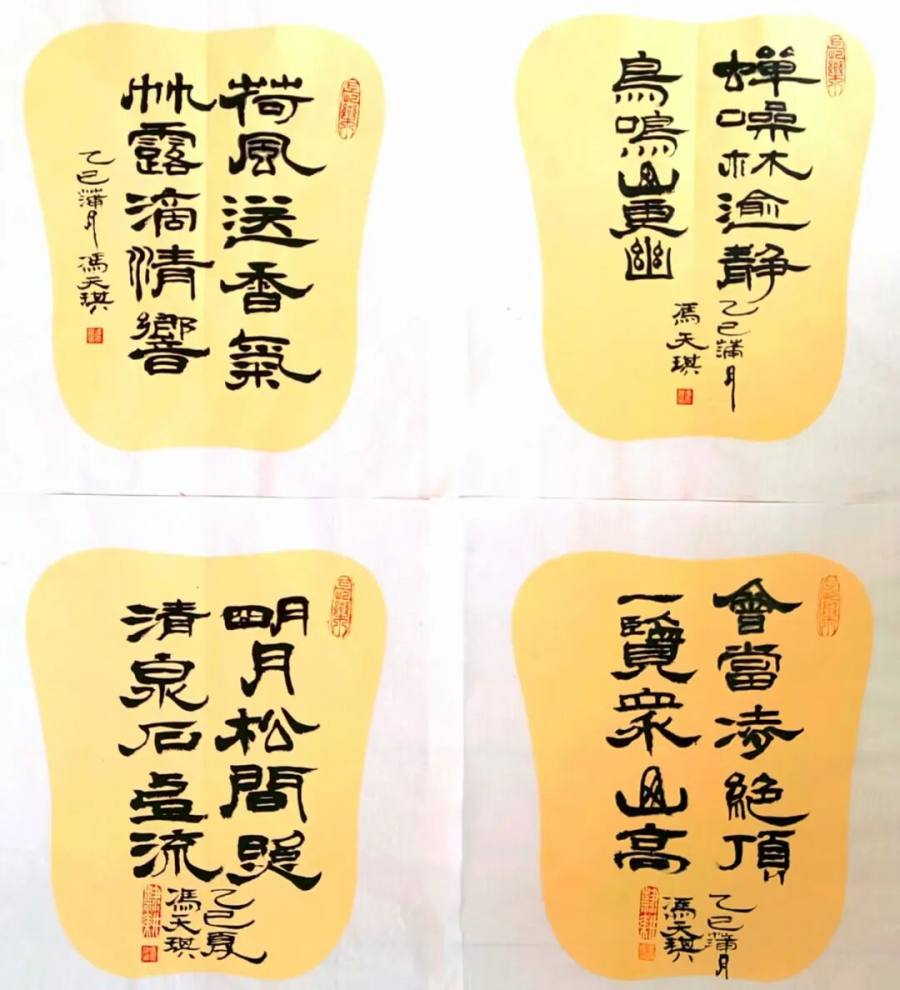 荷風送香氣
竹露滴清響
乙巳蒲月 馮天琪
蝉噪林逾静
乙巳蒲月
鳥鳴山更幽
馮天琪
明月松間照
清泉石上流
乙巳夏
馮天琪
會當凌絶頂
一覽衆山高
乙巳蒲月
馮天琪